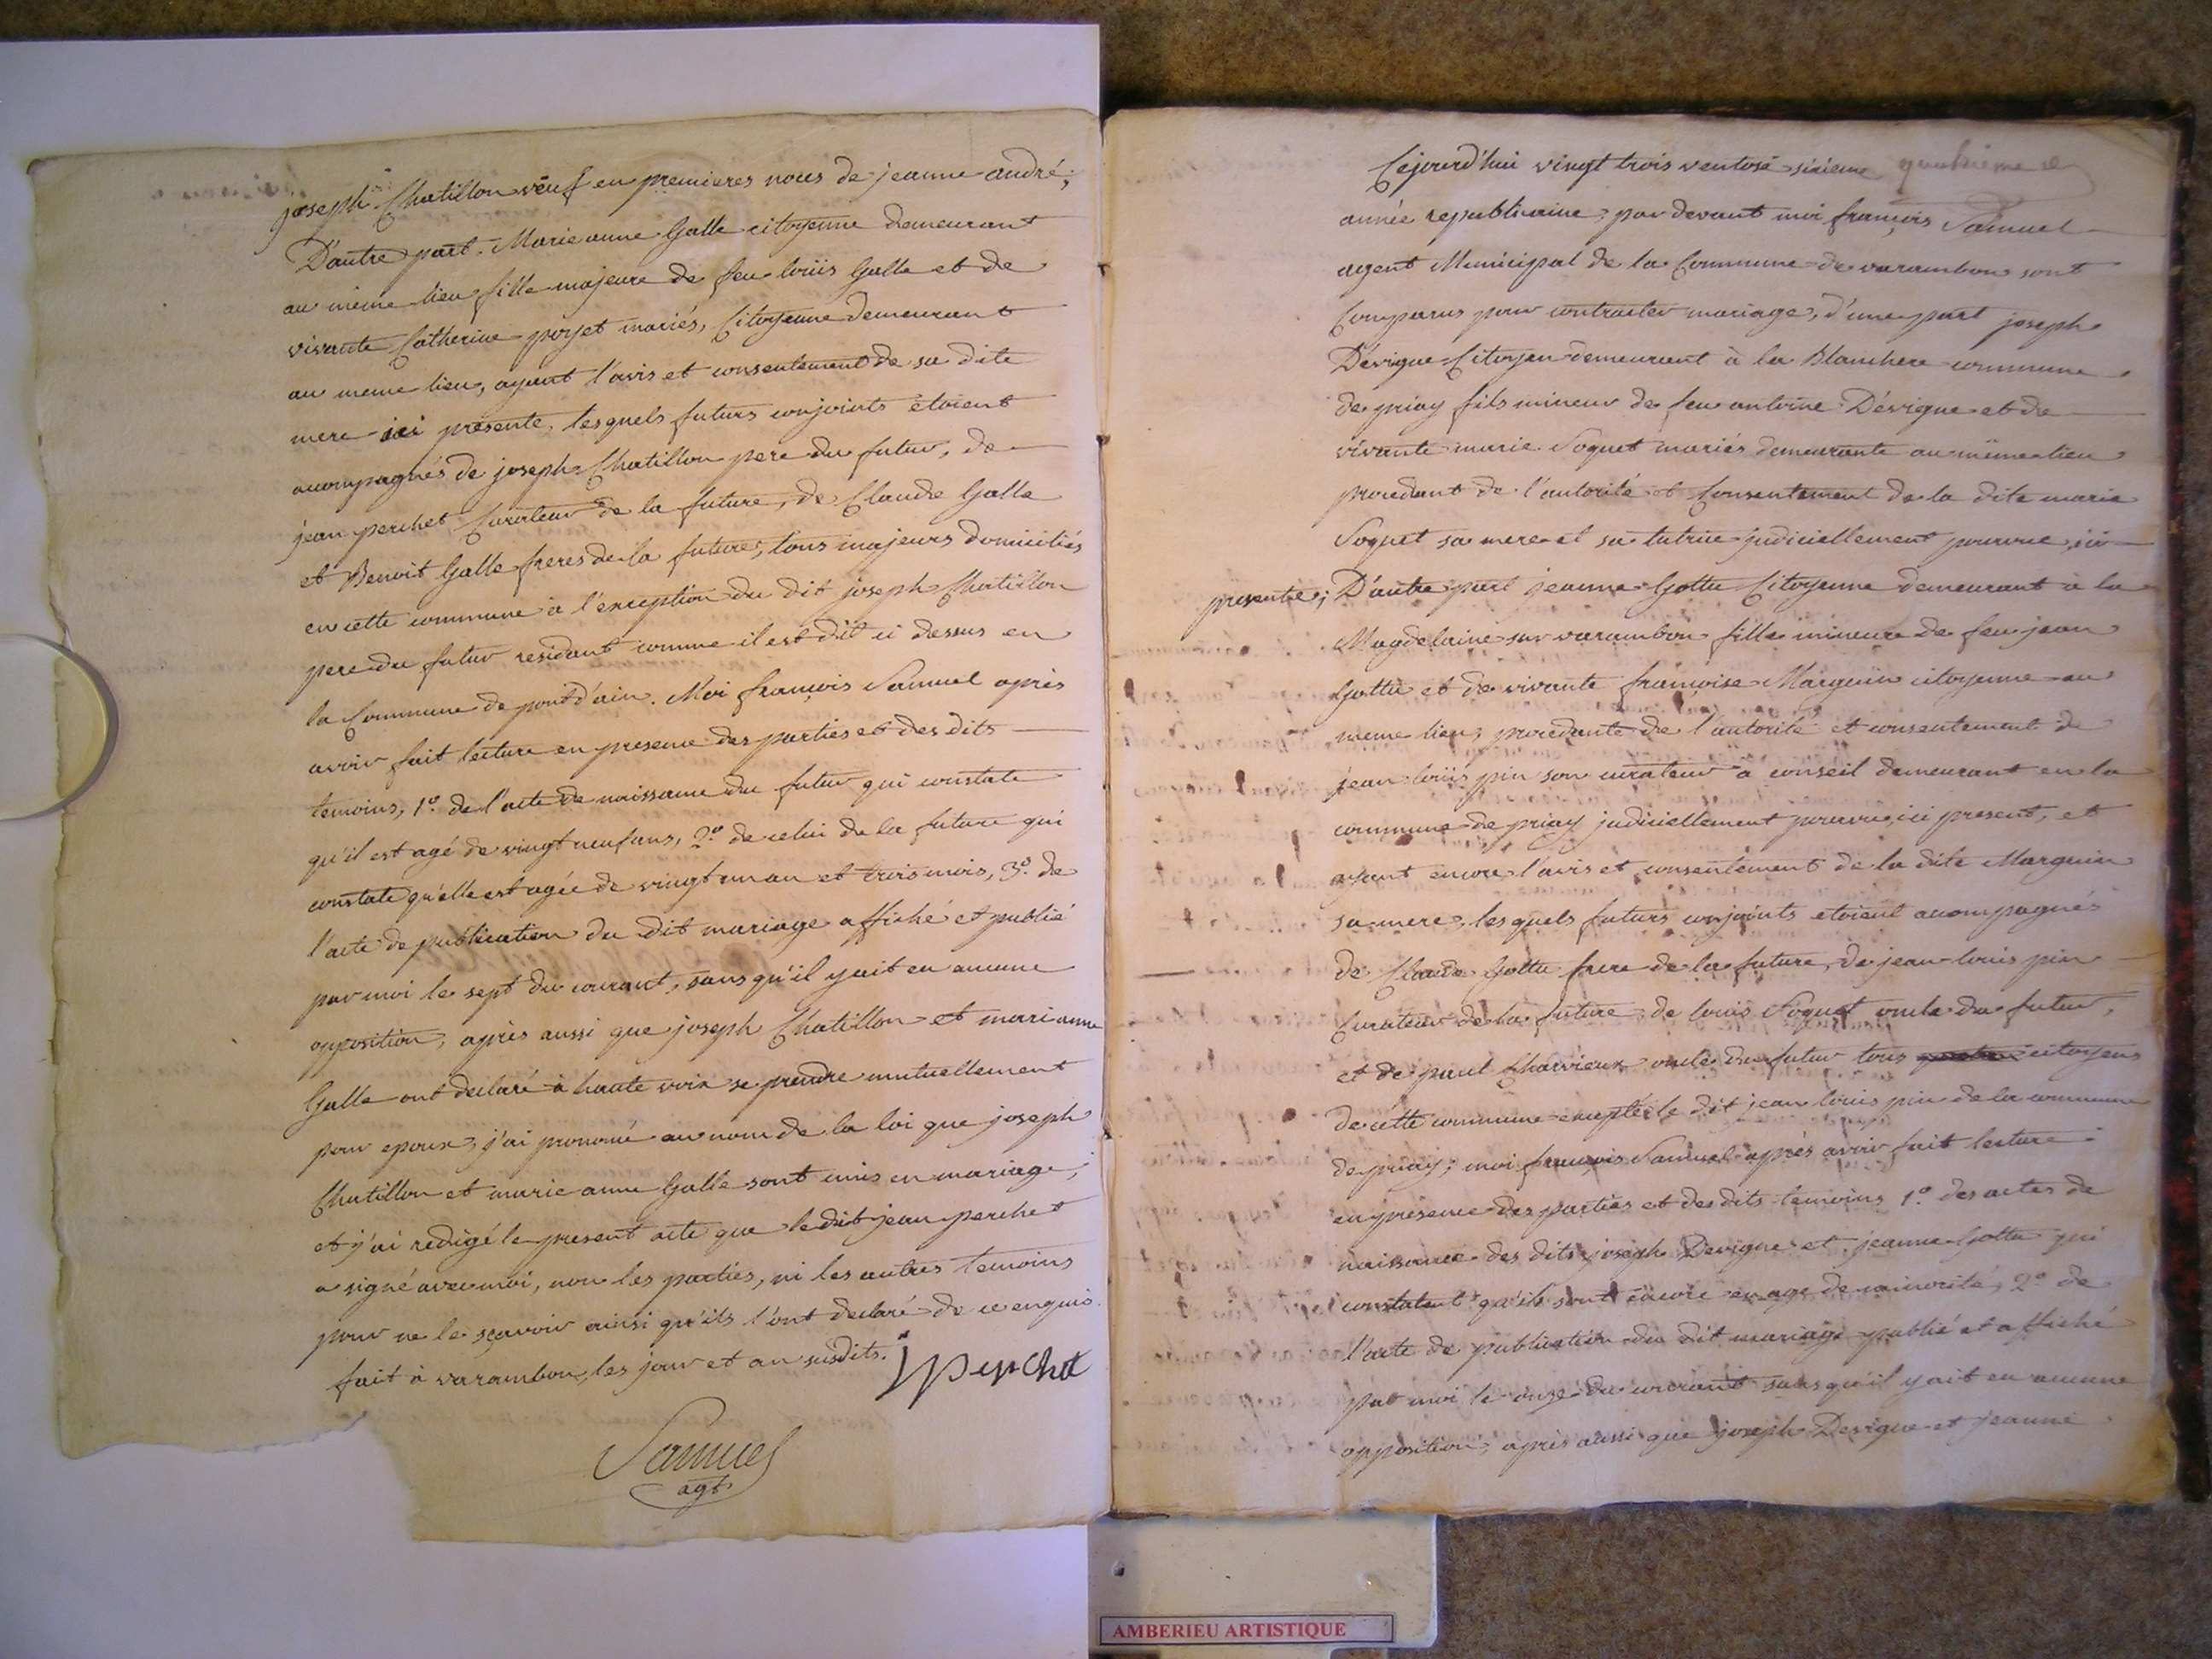 joseph Chatillon veuf en premieres noces de jeanne andré;
D'autre part. Marie anne Galle citoyenne demeurant
au même lieu fille majeure de feu loüis Galle et de
vivante Catherine poyet mariés, Citoyenne demeurant
au meme lieu, ayant l'avis et consentement de sa dite
mere ici presente, lesquels futurs conjoints étoient
acompagnés de joseph Chatillon pere du futur, de
jean perchet Curateur de la future, de Claude Galle
et Benoit Galle freres de la future, tous majeurs domiciliés
en cette commune à l'exception du dit joseph Chatillon
pere du futur residant comme il est dit ci dessus en
la Commune de pont d'ain. Moi françois Samuel après
avoir fait lecture en presence des parties et des dits
temoins, 1º. de l'acte de naissance du futur qui constate
qu'il est agé de vingt neuf ans, 2º. de celui de la future qui
constate qu'elle est agée de vingt un an et trois mois, 3º. de
l'acte de publication du dit mariage affiché et publié
par moi le sept du courant, sans qu'il y ait eu aucune
opposition, après aussi que joseph Chatillon et marianne
Galle ont declaré à haute voix se prendre mutuellement
pour epoux, j'ai prononcé au nom de la loi que joseph
Chatillon et marie anne Galle sont unis en mariage;
et j'ai redigé le present acte que le dit jean perchet
a signé avec moi, non les parties, ni les autres temoins
pour ne le sçavoir ainsi qu'ils l'ont declaré de ce enquis.
fait à varambon, les jour et an susdits. J perchet
Samuel
agt
Cejourd'hui vingt trois ventose sixieme
année republicaine, par devant moi françois Samuel
agent Municipal de la Commune de varambon sont
Comparus pour contracter mariage, d'une part joseph
Dévigue Citoyen demeurant à la Blanchere commune
de priay fils mineur de feu antoine Dévigue et de
vivante marie Soquet mariés demeurante au même lieu
procedant de l'autorité et Consentement de la dite marie
Soquet sa mere et sa tutrice judiciellement pourvue, ici
presente; D'autre part jeanne Gottu Citoyenne demeurant à la
Magdelaine sur varambon fille mineure de feu jean
Gottu et de vivante françoise Marguin citoyenne au
meme lieu, procedante de l'autorité et consentement de
jean loüis pin son curateur à conseil demeurant en la
commune de priay judiciellement pourvu, ici present, et
ayant encore l'avis et consentement de la dite Marguin
sa mere, lesquels futurs conjoints etoient acompagnés
de Claude Gottu frere de la future, de jean louis pin
Curateur de la future, de louis Soquet oncle du futur,
et de paul Charvieux oncle du futur tous citoyens
de cette commune excepté le dit jean louis pin de la commune
de priay; moi françois Samuel après avoir fait lecture
en presence des parties et des dits temoins 1º. des actes de
naissance des dits joseph Devigue et jeanne Gottu qui
constatent qu'ils sont encore en age de minorité, 2º. de
l'acte de publication du dit mariage publié et affiché
par moi le onze du courant sans qu'il y ait eu aucune
opposition, après aussi que joseph Devigue et jeanne
AMBERIEU ARTISTIQUE